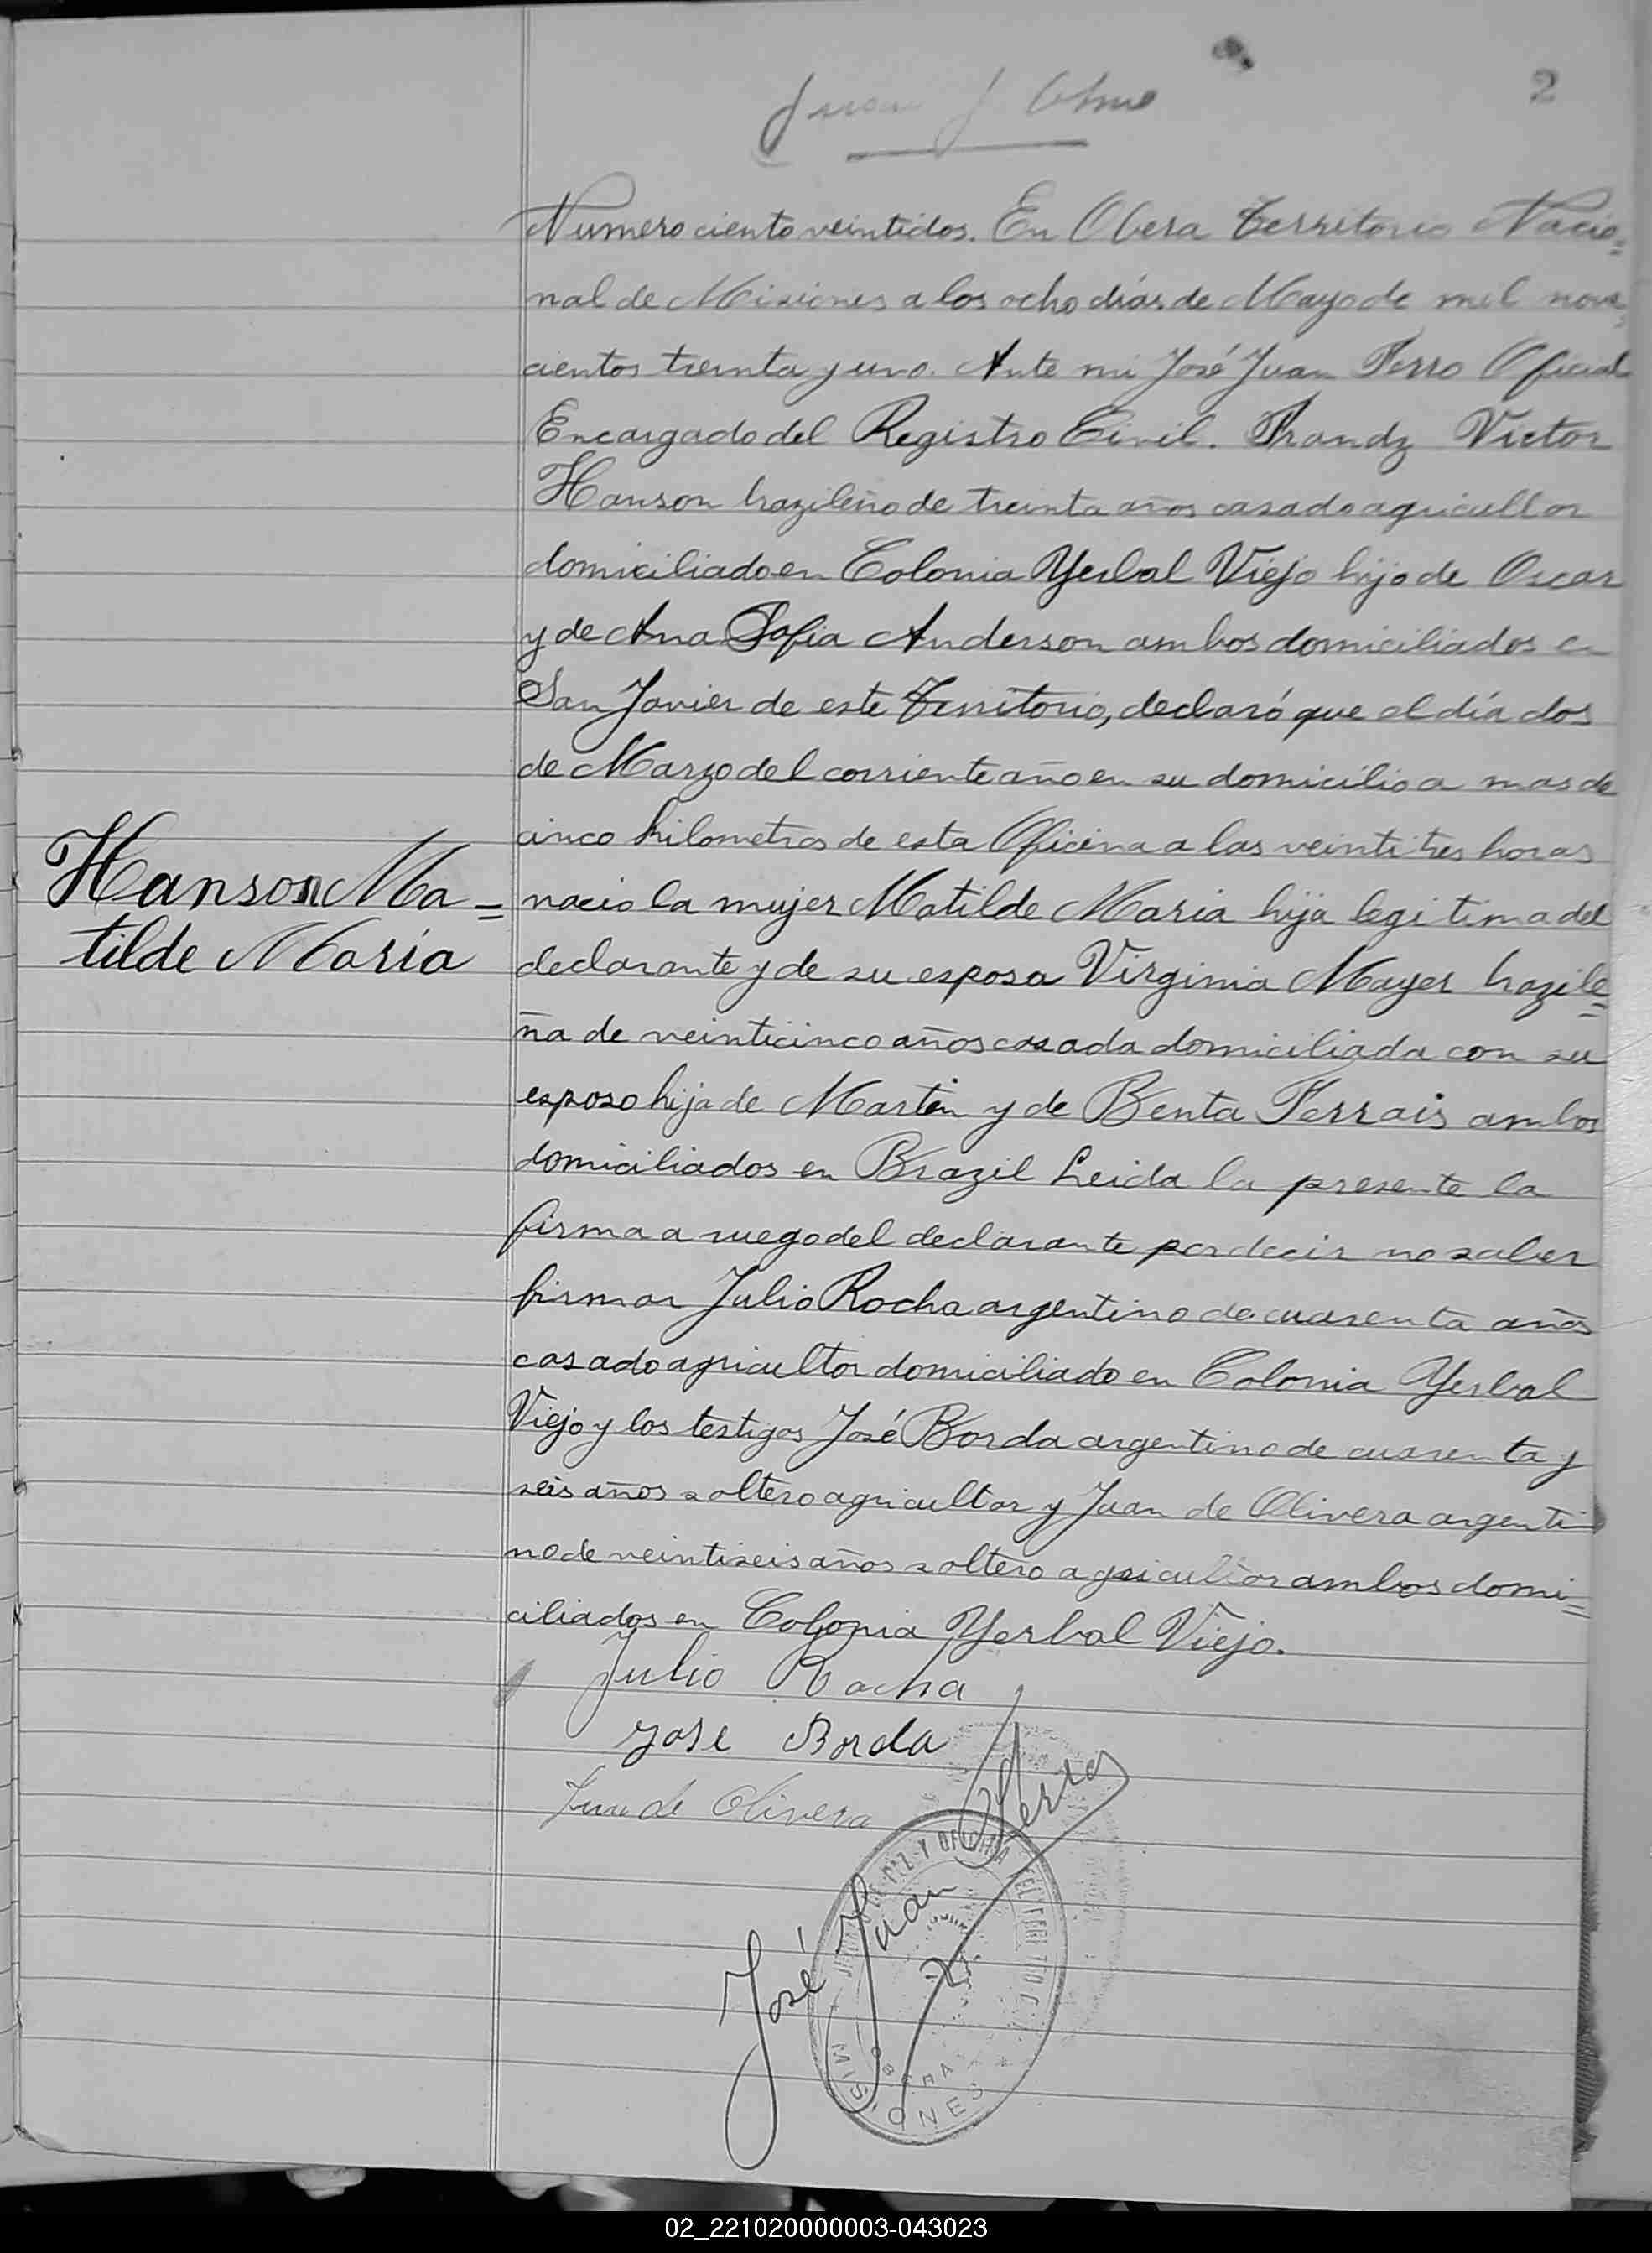 2
Numero ciento veintidos. En Obera Territorio Nacio=
nal de Misiones a los ocho días de Mayo de mil nove=
cientos treinta y uno. Ante mi José Juan Ferro Oficial
Encargado del Registro Civil. Frandz Victor
Hanson brazileño de treinta años casado agricultor
domiciliado en Colonia Yerbal Viejo hijo de Oscar
y de Ana Sofia Anderson ambos domiciliados en
San Javier de este Territorio, declaró que el día dos
de Marzo del corriente año en su domicilio a mas de
cinco kilometros de esta Oficina a las veintitres horas
Hanson Ma=
tilde María
nacio la mujer Matilde Maria hija legitima del
declarante y de su esposa Virginia Mayer brazile=
ña de veinticinco años casada domiciliada con su
esposo hija de Martin y de Benta Ferrais ambos
domiciliados en Brazil Leida la presente la
firma a ruego del declarante por decir no saber
firmar Julio Rocha argentino de cuarenta años
casado agricultor domiciliado en Colonia Yerbal
Viejo y los testigos José Borda argentino de cuarenta y
seis años soltero agricultor y Juan de Olivera argenti
no de veintiseis años soltero agricultor ambos domi=
ciliados en Colonia Yerbal Viejo.
Julio Rocha
Jose Borda
Juan de Olivera
José Juan Ferro
OBERA
MISIONES
02_221020000003-043023